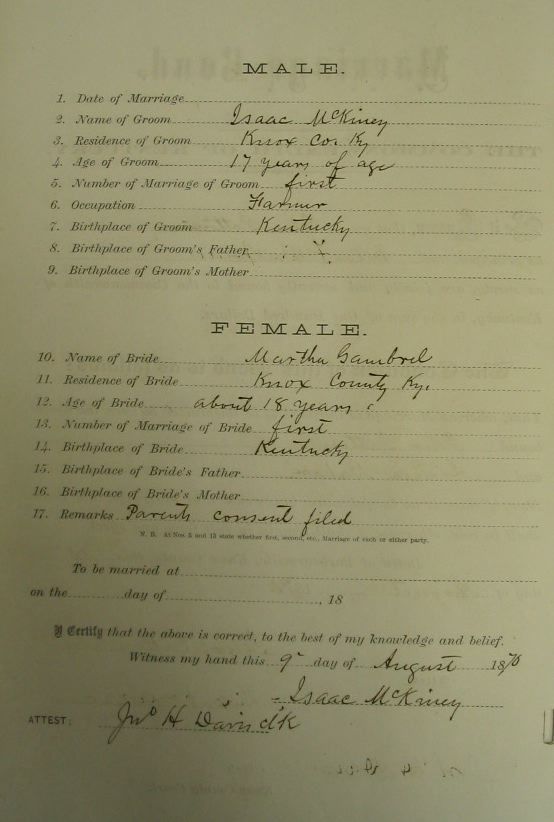 MALE.
1. Date of Marriage
2. Name of Groom Isaac McKiney
3. Residence of Groom Knox Co. Ky
4. Age of Groom 17 years of age
5. Number of Marriage of Groom first
6. Occupation Farmer
7. Birthplace of Groom Kentucky
8. Birthplace of Groom's Father
9. Birthplace of Groom's Mother
FEMALE.
10. Name of Bride Martha Gambrel
11. Residence of Bride Knox County Ky.
12. Age of Bride about 18 years
13. Number of Marriage of Bride first
14. Birthplace of Bride Kentucky
15. Birthplace of Bride's Father
16. Birthplace of Bride's Mother
17. Remarks Parents consent filed
N. B. At Nos. 5 and 13 state whether first, second, etc., Marriage of each or either party.
To be married at
on the day of , 18
I Certify that the above is correct, to the best of my knowledge and belief.
Witness my hand this 9 day of August 1870
Isaac McKiney
ATTEST: Jno H Davis clk